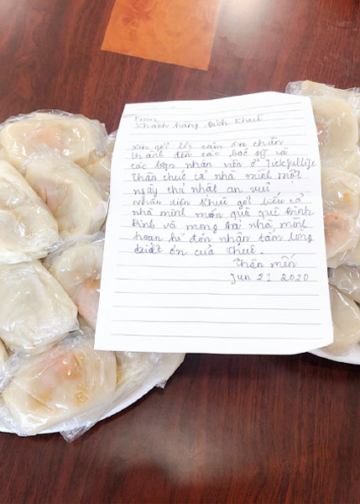 From,
Khách hàng Bích Khuê
Xin gởi lời cảm ơn chân
thành đến các bác sĩ và
các bạn nhân viên ở
Thân chúc cả nhà mình một
ngày thứ nhất an vui,
nhân tiện Khuê gởi biếu cả
nhà mình món quà quê Bình
Định và mong cả nhà mình
hoan hỉ đón nhận tấm lòng
biết ơn của Khuê.
Thân mến
Jun 21 2020